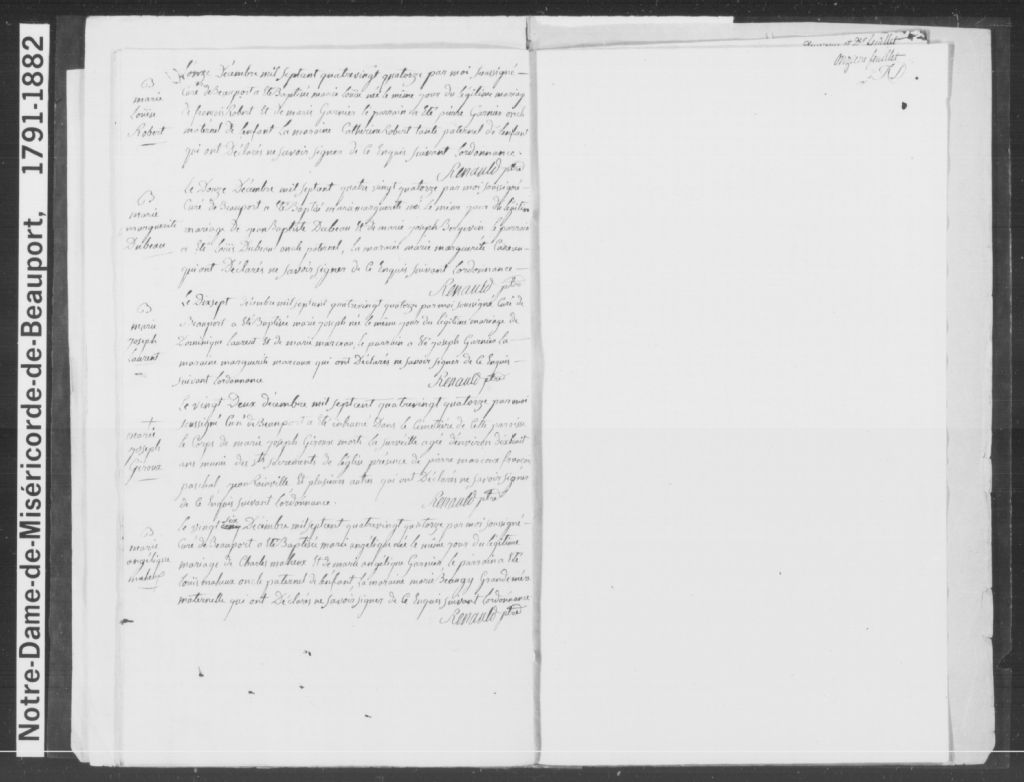 Notre-Dame-de-Miséricorde-de-Beauport, 1791-1882
onzieme feuillet
B
marie
louise
Robert
Le onze Décembre mil septcent quatrevingt quatorze par moi soussigné
Curé de Beauport a été Baptisée marie louise née le même jour du legitime mariage
de françois Robert et de marie Garnier le parrain a été pierre Garnier oncle
maternel de l'enfant la maraine Catherine Robert tante paternel de l'enfant
qui ont Déclarés ne savoir signer de ce Enquis suivant l'ordonnance.
Renauld ptre
B
marie
marguerite
Dubeau
Le Douze Décembre mil septcent quatre vingt quatorze par moi soussigné
Curé de Beauport a été Baptisé marie marguerite né le même jour du legitime
mariage de jean Baptiste Dubeau et de marie joseph le parrain
a été louis Dubeau oncle paternel, la maraine marie marguerite
qui ont Déclarés ne savoir signer de ce Enquis suivant l'ordonnance
Renauld ptre
B
marie
joseph
laurent
Le Dixsept Décembre mil septcent quatrevingt quatorze par moi soussigné Curé de
Beauport a été Baptisée marie joseph née le même jour du legitime mariage de
Dominique laurent et de marie marcoux, le parrain a été joseph Garnier la
maraine marguerite marcoux qui ont Déclarés ne savoir signer de ce Enquis
suivant l'ordonnance
Renauld ptre
+
marie
joseph
Giroux
Le vingt Deux décembre mil septcent quatrevingt quatorze par moi
soussigné Curé de Beauport a été inhumé Dans le Cimetiere de cette paroisse
le Corps de marie joseph Giroux morte la surveille agée d'environ dixhuit
ans munie des Sts sacrements de l'église présence de pierre marcoux françois
paschal jean et plusieurs autres qui ont Déclarés ne savoir signer
de ce Enquis suivant l'ordonnance.
Renauld ptre
B
marie
angelique
maheux
Le vingt six Décembre mil septcent quatrevingt quatorze par moi soussigné
Curé de Beauport a été Baptisée marie angelique née le même jour du legitime
mariage de Charles maheux et de marie angelique Garnier le parrain a été
louis maheux oncle paternel de l'enfant la maraine marie Grandemère
maternelle qui ont Déclarés ne savoir signer de ce Enquis suivant l'ordonnance
Renauld ptre